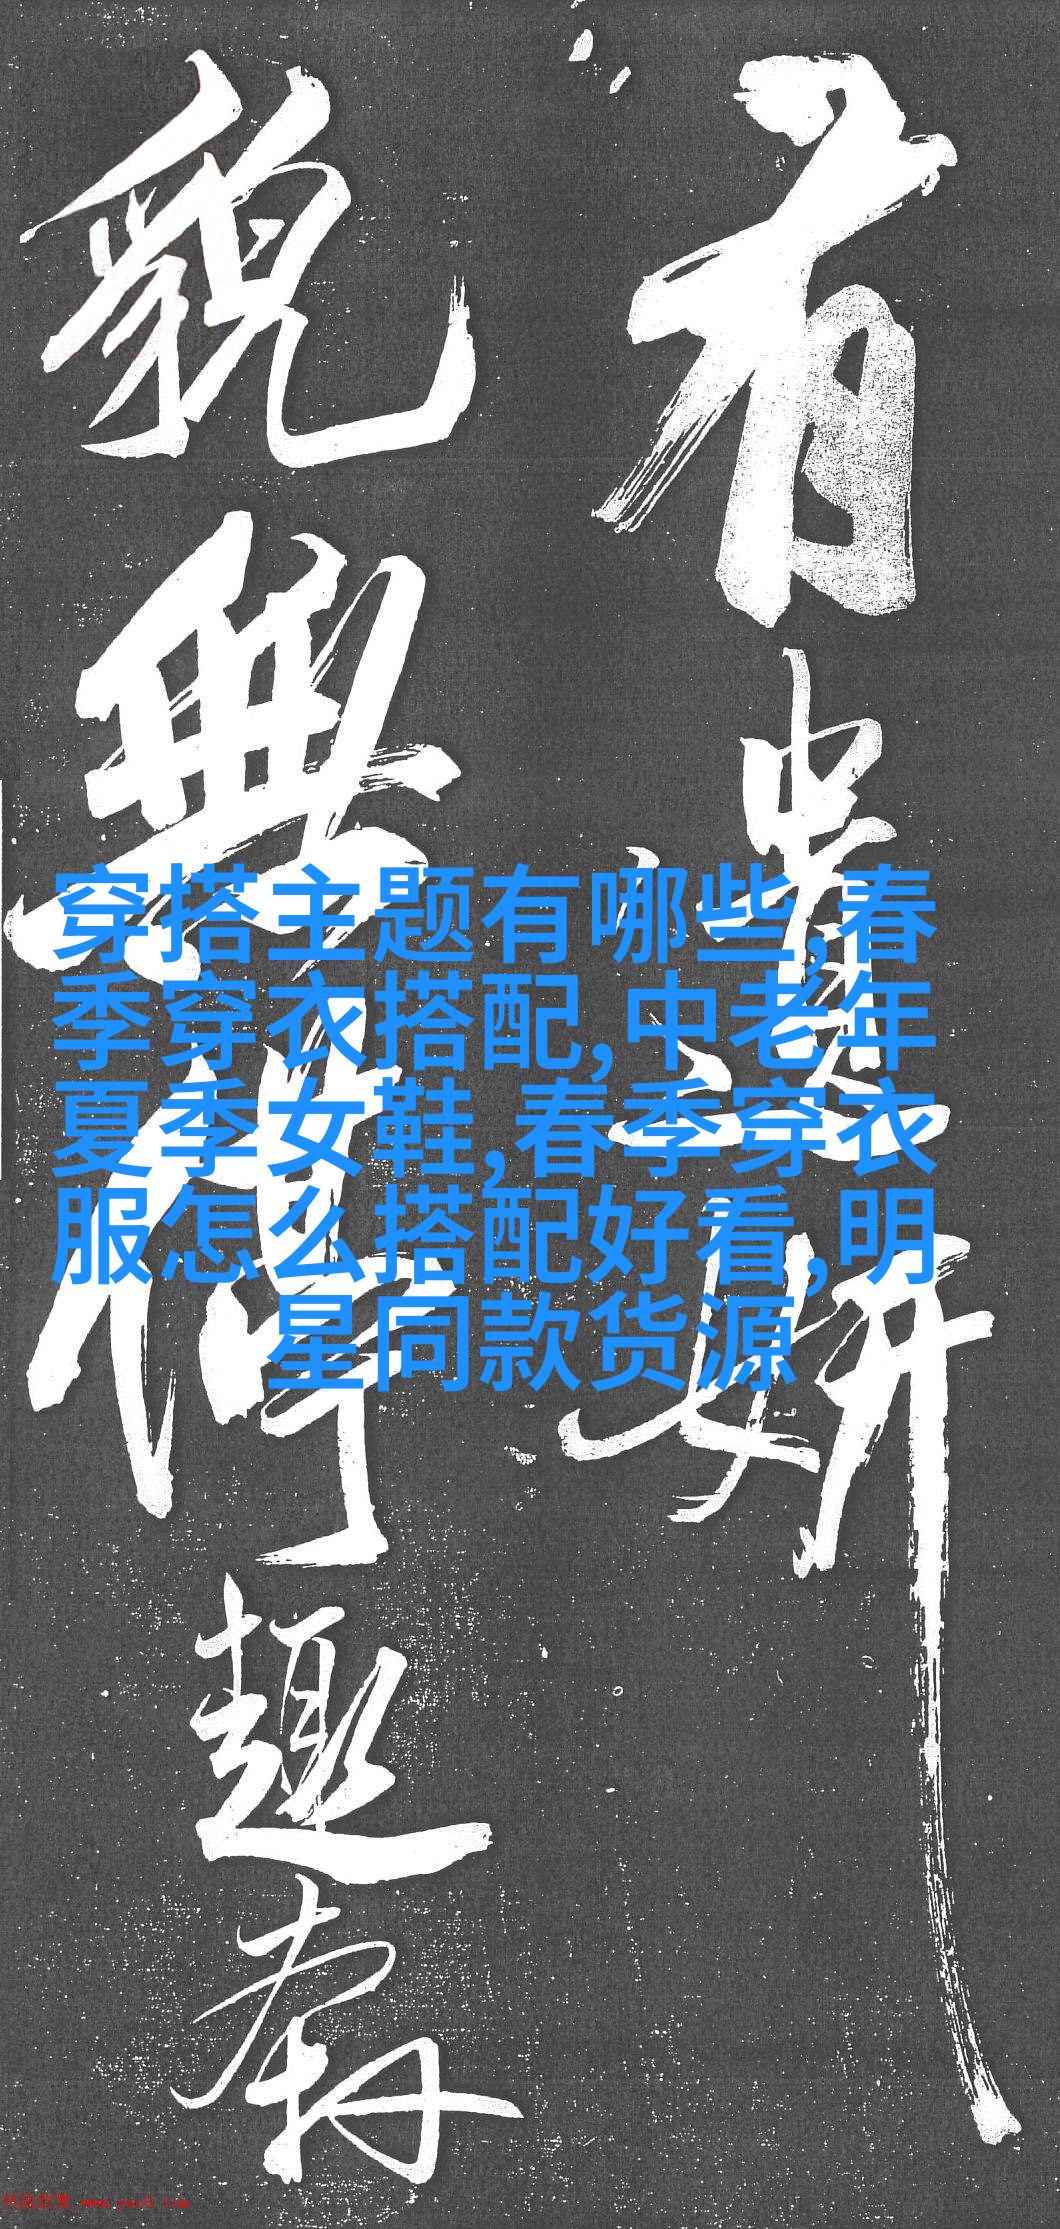 有遗妍
貌无俾趣有
穿搭主题有哪些,春
季穿衣搭配,中老年
夏季女鞋,春季穿衣
服怎么搭配好看,明
星同款货源
书法欣赏